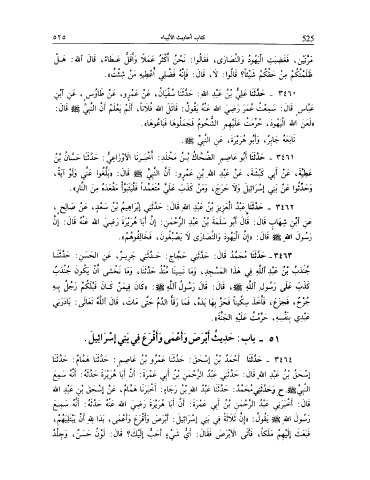 525 كتاب أحاديث الأنبياء ٥٢٥
مَرَّتَيْنِ، فَغَضِبَتِ الْيَهُودُ وَالنَّصَارَى، فَقَالُوا: نَحْنُ أَكْثَرُ عَمَلًا وَأَقَلُّ عَطَاءً، قَالَ اللهُ: هَلْ
ظَلَمْتُكُمْ مِنْ حَقِّكُمْ شَيْئًا؟ قَالُوا: لَا، قَالَ: فَإِنَّهُ فَضْلِي أُعْطِيهِ مَنْ شِئْتُ».
٣٤٦٠ - حَدَّثَنَا عَلِيُّ بْنُ عَبْدِ اللهِ: حَدَّثَنَا سُفْيَانُ، عَنْ عَمْرٍو، عَنْ طَاوُسٍ، عَنِ ابْنِ
عَبَّاسٍ قَالَ: سَمِعْتُ عُمَرَ رَضِيَ اللهُ عَنْهُ يَقُولُ: قَاتَلَ اللهُ فُلَانًا، أَلَمْ يَعْلَمْ أَنَّ النَّبِيَّ ﷺ قَالَ:
«لَعَنَ اللهُ الْيَهُودَ، حُرِّمَتْ عَلَيْهِمِ الشُّحُومُ فَجَمَلُوهَا فَبَاعُوهَا».
تَابَعَهُ جَابِرٌ، وَأَبُو هُرَيْرَةَ، عَنِ النَّبِيِّ ﷺ.
٣٤٦١ - حَدَّثَنَا أَبُو عَاصِمٍ الضَّحَّاكُ بْنُ مَخْلَدٍ: أَخْبَرَنَا الْأَوْزَاعِيُّ: حَدَّثَنَا حَسَّانُ بْنُ
عَطِيَّةَ، عَنْ أَبِي كَبْشَةَ، عَنْ عَبْدِ اللهِ بْنِ عَمْرٍو: أَنَّ النَّبِيَّ ﷺ قَالَ: «بَلِّغُوا عَنِّي وَلَوْ آيَةً،
وَحَدِّثُوا عَنْ بَنِي إِسْرَائِيلَ وَلَا حَرَجَ، وَمَنْ كَذَبَ عَلَيَّ مُتَعَمِّدًا فَلْيَتَبَوَّأْ مَقْعَدَهُ مِنَ النَّارِ».
٣٤٦٢ - حَدَّثَنَا عَبْدُ الْعَزِيزِ بْنُ عَبْدِ اللهِ قَالَ: حَدَّثَنِي إِبْرَاهِيمُ بْنُ سَعْدٍ، عَنْ صَالِحٍ،
عَنِ ابْنِ شِهَابٍ قَالَ: قَالَ أَبُو سَلَمَةَ بْنُ عَبْدِ الرَّحْمَنِ: إِنَّ أَبَا هُرَيْرَةَ رَضِيَ اللهُ عَنْهُ قَالَ: إِنَّ
رَسُولَ اللهِ ﷺ قَالَ: «إِنَّ الْيَهُودَ وَالنَّصَارَى لَا يَصْبُغُونَ، فَخَالِفُوهُمْ».
٣٤٦٣ - حَدَّثَنَا مُحَمَّدٌ قَالَ: حَدَّثَنِي حَجَّاجٌ: حَدَّثَنِي جَرِيرٌ، عَنِ الْحَسَنِ: حَدَّثَنَا
جُنْدَبُ بْنُ عَبْدِ اللهِ فِي هَذَا الْمَسْجِدِ، وَمَا نَسِينَا مُنْذُ حَدَّثَنَا، وَمَا نَخْشَى أَنْ يَكُونَ جُنْدَبٌ
كَذَبَ عَلَى رَسُولِ اللهِ ﷺ، قَالَ: قَالَ رَسُولُ اللهِ ﷺ: «كَانَ فِيمَنْ كَانَ قَبْلَكُمْ رَجُلٌ بِهِ
جُرْحٌ، فَجَزِعَ، فَأَخَذَ سِكِّينًا فَحَزَّ بِهَا يَدَهُ، فَمَا رَقَأَ الدَّمُ حَتَّى مَاتَ، قَالَ اللهُ تَعَالَى: بَادَرَنِي
عَبْدِي بِنَفْسِهِ، حَرَّمْتُ عَلَيْهِ الْجَنَّةَ».
٥١ - باب: حَدِيثُ أَبْرَصَ وَأَعْمَى وَأَقْرَعَ فِي بَنِي إِسْرَائِيلَ
٣٤٦٤ - حَدَّثَنَا أَحْمَدُ بْنُ إِسْحَقَ: حَدَّثَنَا عَمْرُو بْنُ عَاصِمٍ: حَدَّثَنَا هَمَّامٌ: حَدَّثَنَا
إِسْحَقُ بْنُ عَبْدِ اللهِ قَالَ: حَدَّثَنِي عَبْدُ الرَّحْمَنِ بْنُ أَبِي عَمْرَةَ: أَنَّ أَبَا هُرَيْرَةَ حَدَّثَهُ: أَنَّهُ سَمِعَ
النَّبِيَّ ﷺ. ح وَحَدَّثَنِي مُحَمَّدٌ: حَدَّثَنَا عَبْدُ اللهِ بْنُ رَجَاءٍ: أَخْبَرَنَا هَمَّامٌ، عَنْ إِسْحَقَ بْنِ عَبْدِ اللهِ
قَالَ: أَخْبَرَنِي عَبْدُ الرَّحْمَنِ بْنُ أَبِي عَمْرَةَ: أَنَّ أَبَا هُرَيْرَةَ رَضِيَ اللهُ عَنْهُ حَدَّثَهُ: أَنَّهُ سَمِعَ
رَسُولَ اللهِ ﷺ يَقُولُ: «إِنَّ ثَلَاثَةً فِي بَنِي إِسْرَائِيلَ: أَبْرَصَ وَأَقْرَعَ وَأَعْمَى، بَدَا لِلهِ أَنْ يَبْتَلِيَهُمْ،
فَبَعَثَ إِلَيْهِمْ مَلَكًا، فَأَتَى الْأَبْرَصَ فَقَالَ: أَيُّ شَيْءٍ أَحَبُّ إِلَيْكَ؟ قَالَ: لَوْنٌ حَسَنٌ، وَجِلْدٌ